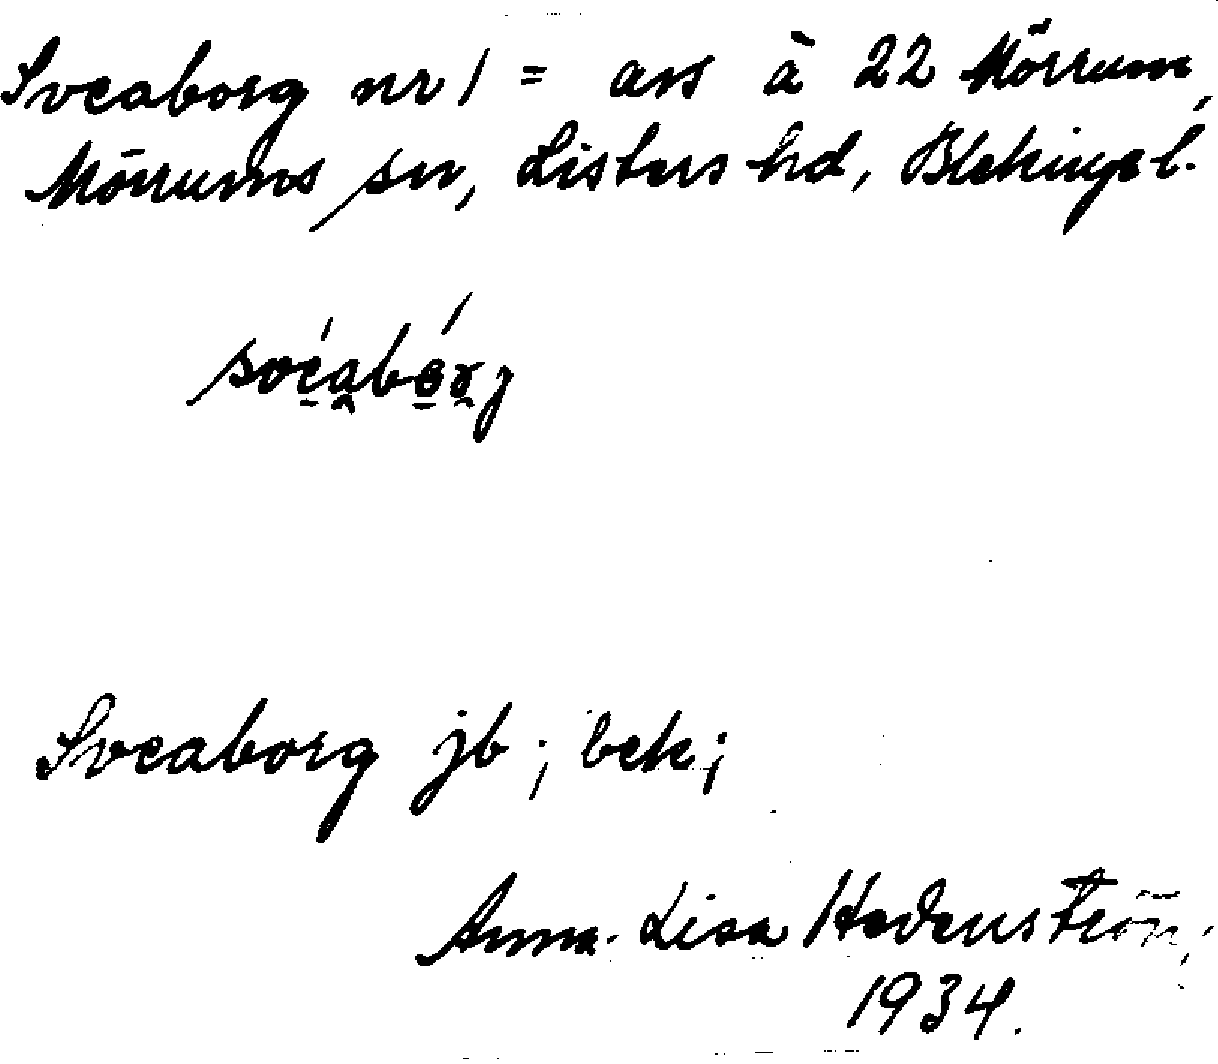 Sveaborg nr 1 = avs à 22 Mörrum,
Mörrums sn, Listers hd, Blekinge l.
Sveaborg jb; bek;
Anna-Lisa Hedenström,
1934.